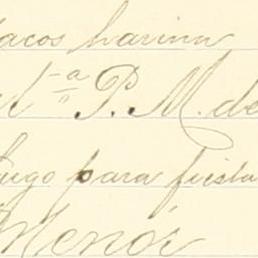 sacos harina
al -a P. M. de
Lugo para fiesta
Menor